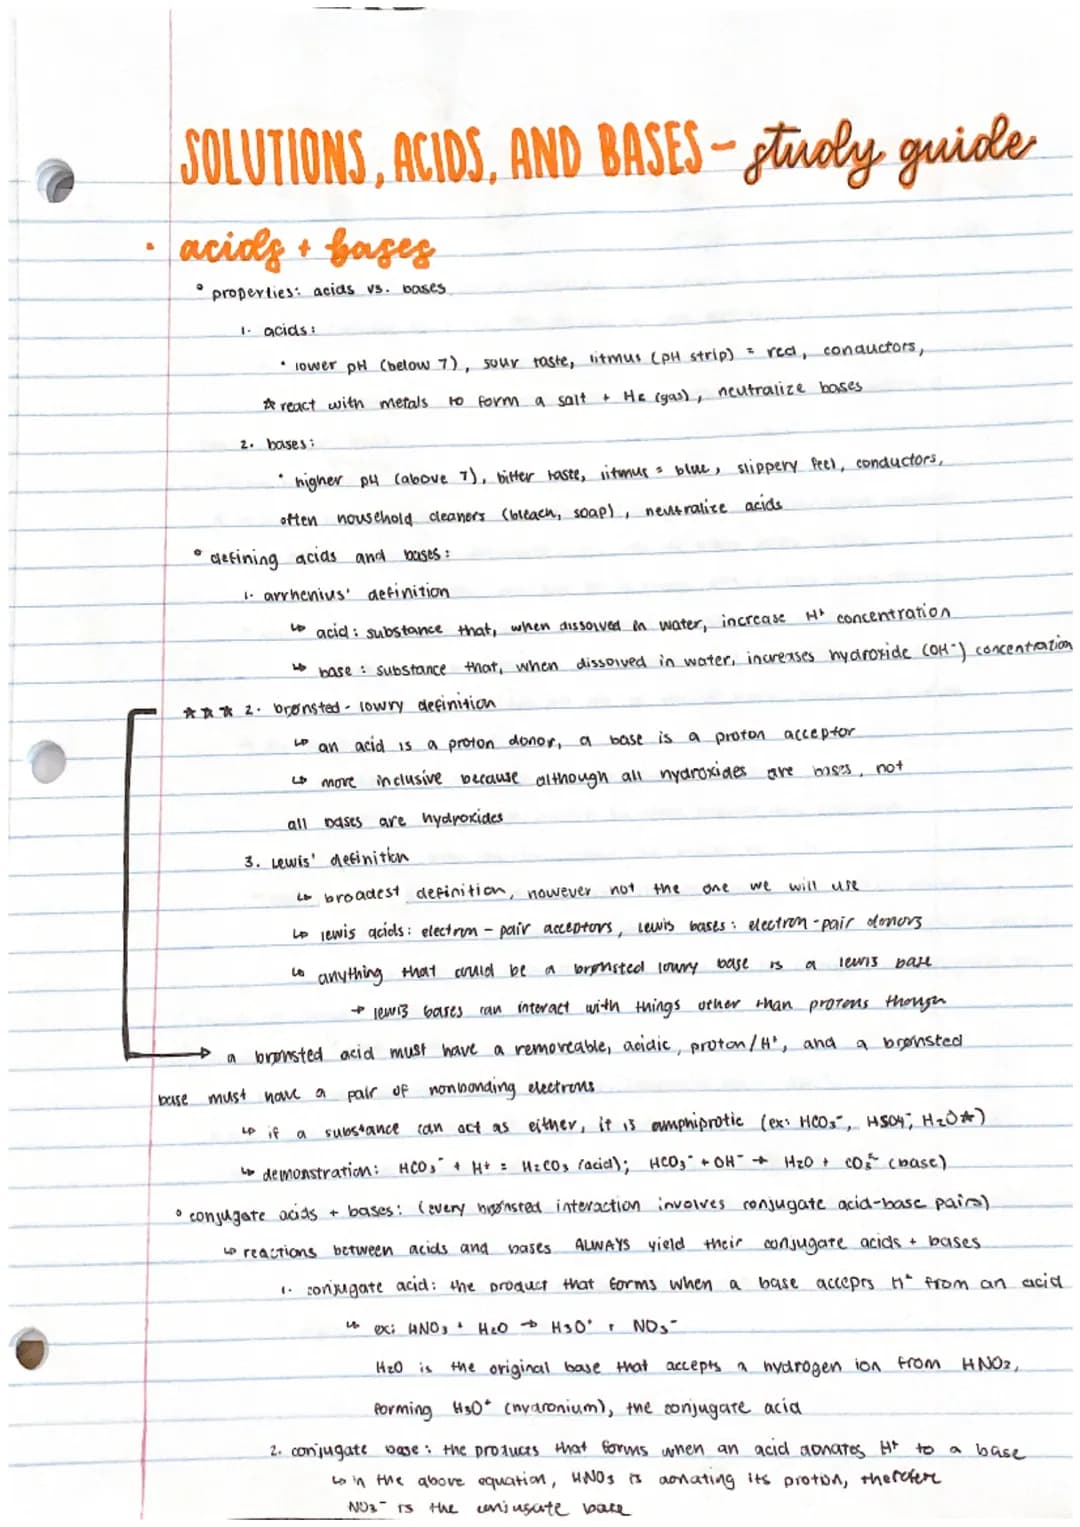 SOLUTIONS, ACIDS, AND BASES - study guide
• acids + bases
° properties: acids vs. bases
1. acids:
• lower pH (below 7), sour taste, litmus (pH strip) = red, conductors,
☆ react with metals to form a salt + H₂ (gas), neutralize bases
2. bases:
• higher pH (above 7), bitter taste, litmus = blue, slippery feel, conductors,
often household cleaners (bleach, soap), neutralize acids
° defining acids and bases:
1. arrhenius' definition
↳ acid: substance that, when dissolved in water, increase H⁺ concentration
↳ base: substance that, when dissolved in water, increases hydroxide (OH⁻) concentration
☆☆☆ 2. brønsted-lowry definition
↳ an acid is a proton donor, a base is a proton acceptor
↳ more inclusive because although all hydroxides are bases, not
all bases are hydroxides
3. Lewis' definition
↳ broadest definition, however not the one we will use
↳ lewis acids: electron-pair acceptors, Lewis bases: electron-pair donors
↳ anything that could be a brønsted lowry base is a lewis base
→ lewis bases can interact with things other than protons though
→ a brønsted acid must have a removeable, acidic, proton/H⁺, and a brønsted
base must have a pair of nonbonding electrons
↳ if a substance can act as either, it is amphiprotic (ex: HCO₃⁻, HSO₄⁻, H₂O☆)
↳ demonstration: HCO₃⁻ + H+ = H₂CO₃ (acid); HCO₃⁻ + OH⁻ → H₂O + CO₃²⁻ (base)
° conjugate acids + bases: (every brønsted interaction involves conjugate acid-base pairs)
↳ reactions between acids and bases ALWAYS yield their conjugate acids + bases
1. conjugate acid: the product that forms when a base accepts H⁺ from an acid
↳ ex: HNO₃ + H₂O → H₃O⁺ + NO₃⁻
H₂O is the original base that accepts a hydrogen ion from HNO₃,
forming H₃O⁺ (hydronium), the conjugate acid
2. conjugate base: the products that forms when an acid donates H⁺ to a base
↳ in the above equation, HNO₃ is donating its proton, therefore
NO₃⁻ is the conjugate base